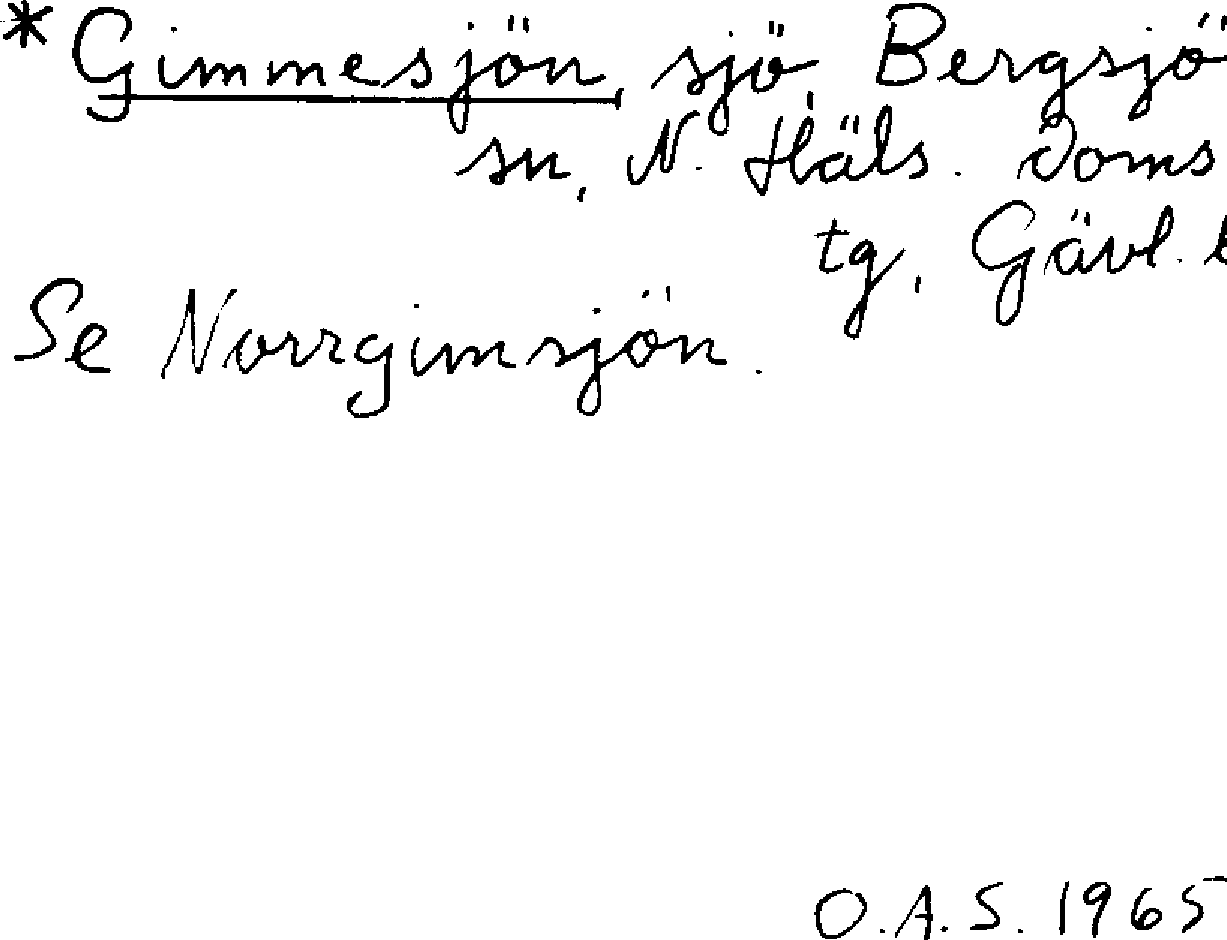 *Gimmesjön, sjö, Bergsjö
sn, N. Häls. doms
tg, Gävl.
Se Norrgimsjön.
O.A.S. 1965